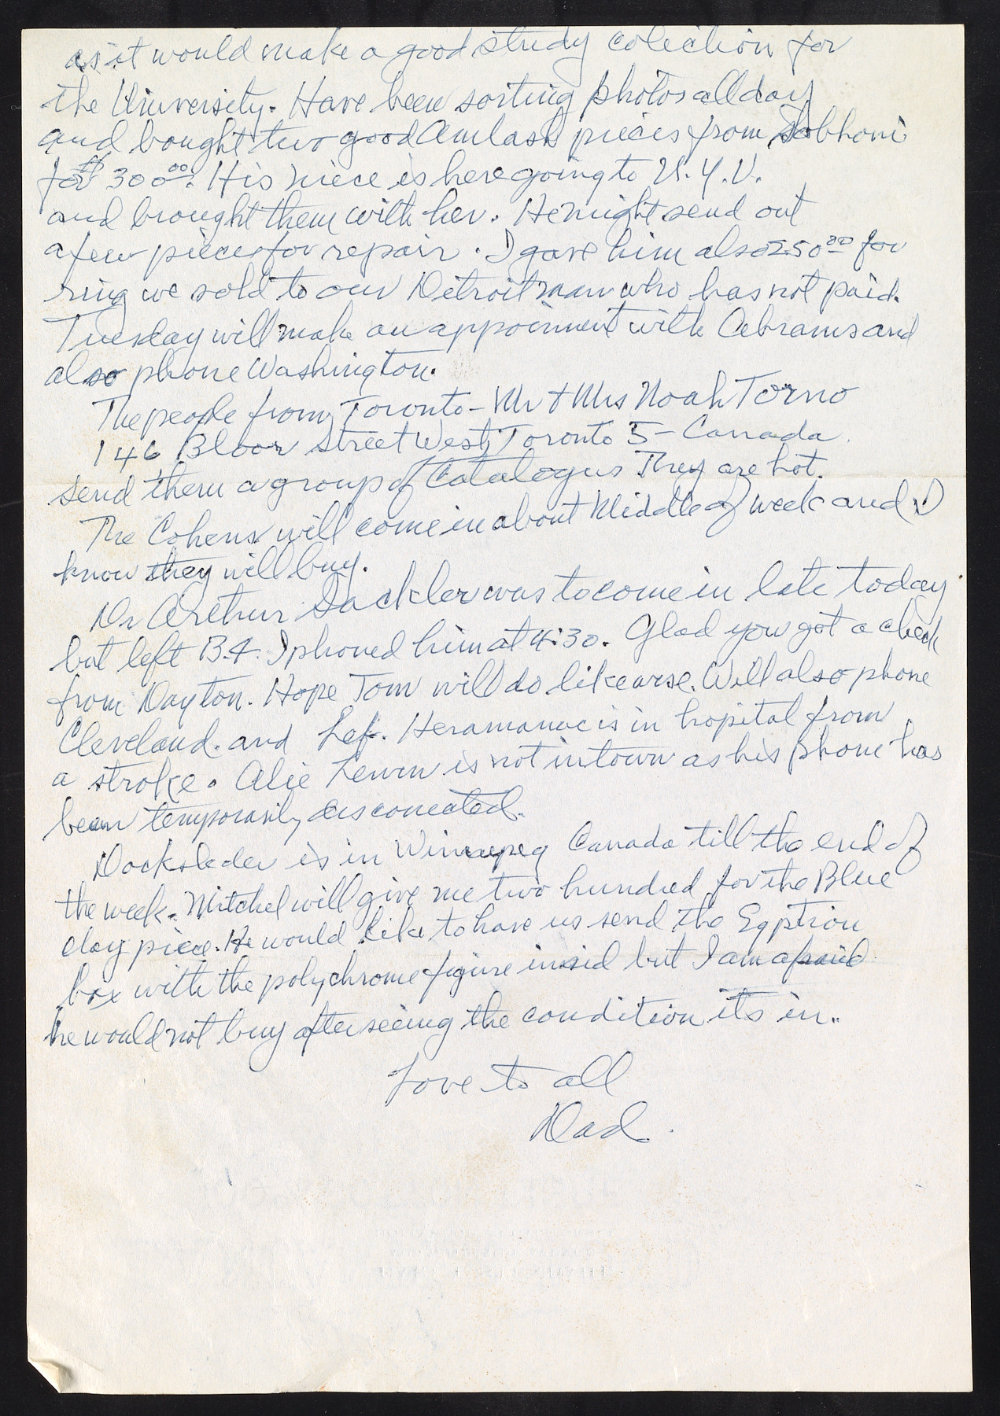 as it would make a good study colection for
the University. Have been sorting photos all day
and bought two good Amlash pieces from Sobhani
for $300.00. His niece is here going to N.Y.U.
and brought them with her. He might send out
a few pieces for repair. I gave him also 250.00 for
ring we sold to our Detroit man who has not paid.
Tuesday will make an appoinment with Abrams and
also phone Washington.
The people from Toronto - Mr + Mrs Noah Torno
146 Bloor Street West, Toronto 5 - Canada.
send them a group of Catalogus They are hot.
The Cohens will come in about Middle of week and I
know they will buy.
Dr Arthur Sackler was to come in late today
but left B.4. I phoned him at 4:30. Glad you got a check
from Dayton. Hope Tom will do likewise. Will also phone
Cleveland. and Lef. Heramanec is in hopital from
a stroke. Alie Lewin is not in town as his phone has
been temporarily disconected.
Docksteder is in Winnepeg Canada till the end of
the week. Mitchel will give me two hundred for the Blue
clay piece. He would like to have us send the Egption
box with the polychrome figure insid but I am afraid
he would not buy after seeing the condition its in..
Love to all
Dad.